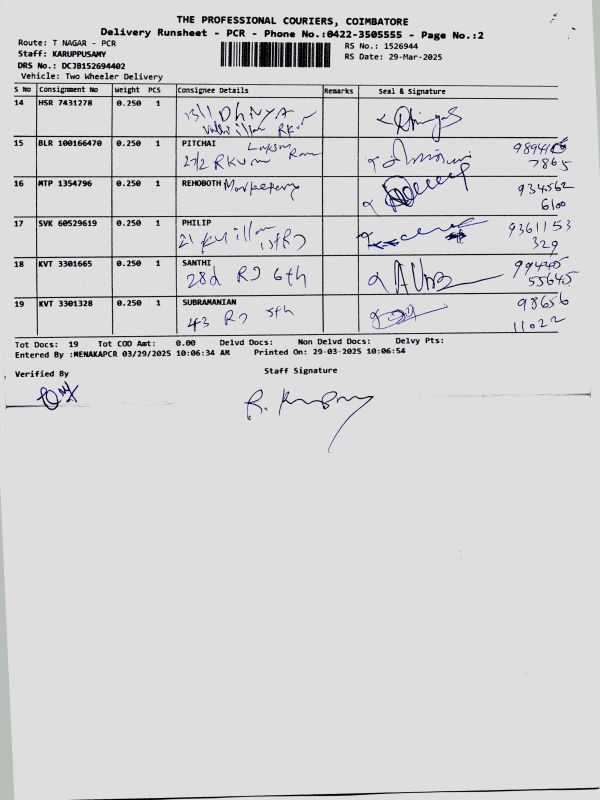 THE PROFESSIONAL COURIERS, COIMBATORE
Delivery Runsheet - PCR - Phone No.:0422-3505555 - Page No.:2
Route: T NAGAR - PCR
Staff: KARUPPUSAMY
DRS No.: DCJB152694402
Vehicle: Two Wheeler Delivery
RS No.: 1526944
RS Date: 29-Mar-2025
S No Consignment No Weight PCS Consignee Details Remarks Seal & Signature
14 HSR 7431278 0.250 1
15 BLR 100166470 0.250 1 PITCHAI
7865
16 MTP 1354796 0.250 1 REHOBOTH
934562
6100
17 SVK 60529619 0.250 1 PHILIP
9361153
329
18 KVT 3301665 0.250 1 SANTHI
28d RD 6th
99445
55645
19 KVT 3301328 0.250 1 SUBRAMANIAN
43 RD 5th
98656
11022
Tot Docs: 19 Tot COD Amt: 0.00 Delvd Docs: Non Delvd Docs: Delvy Pts:
Entered By :MENAKAPCR 03/29/2025 10:06:34 AM Printed On: 29-03-2025 10:06:54
Verified By
Staff Signature